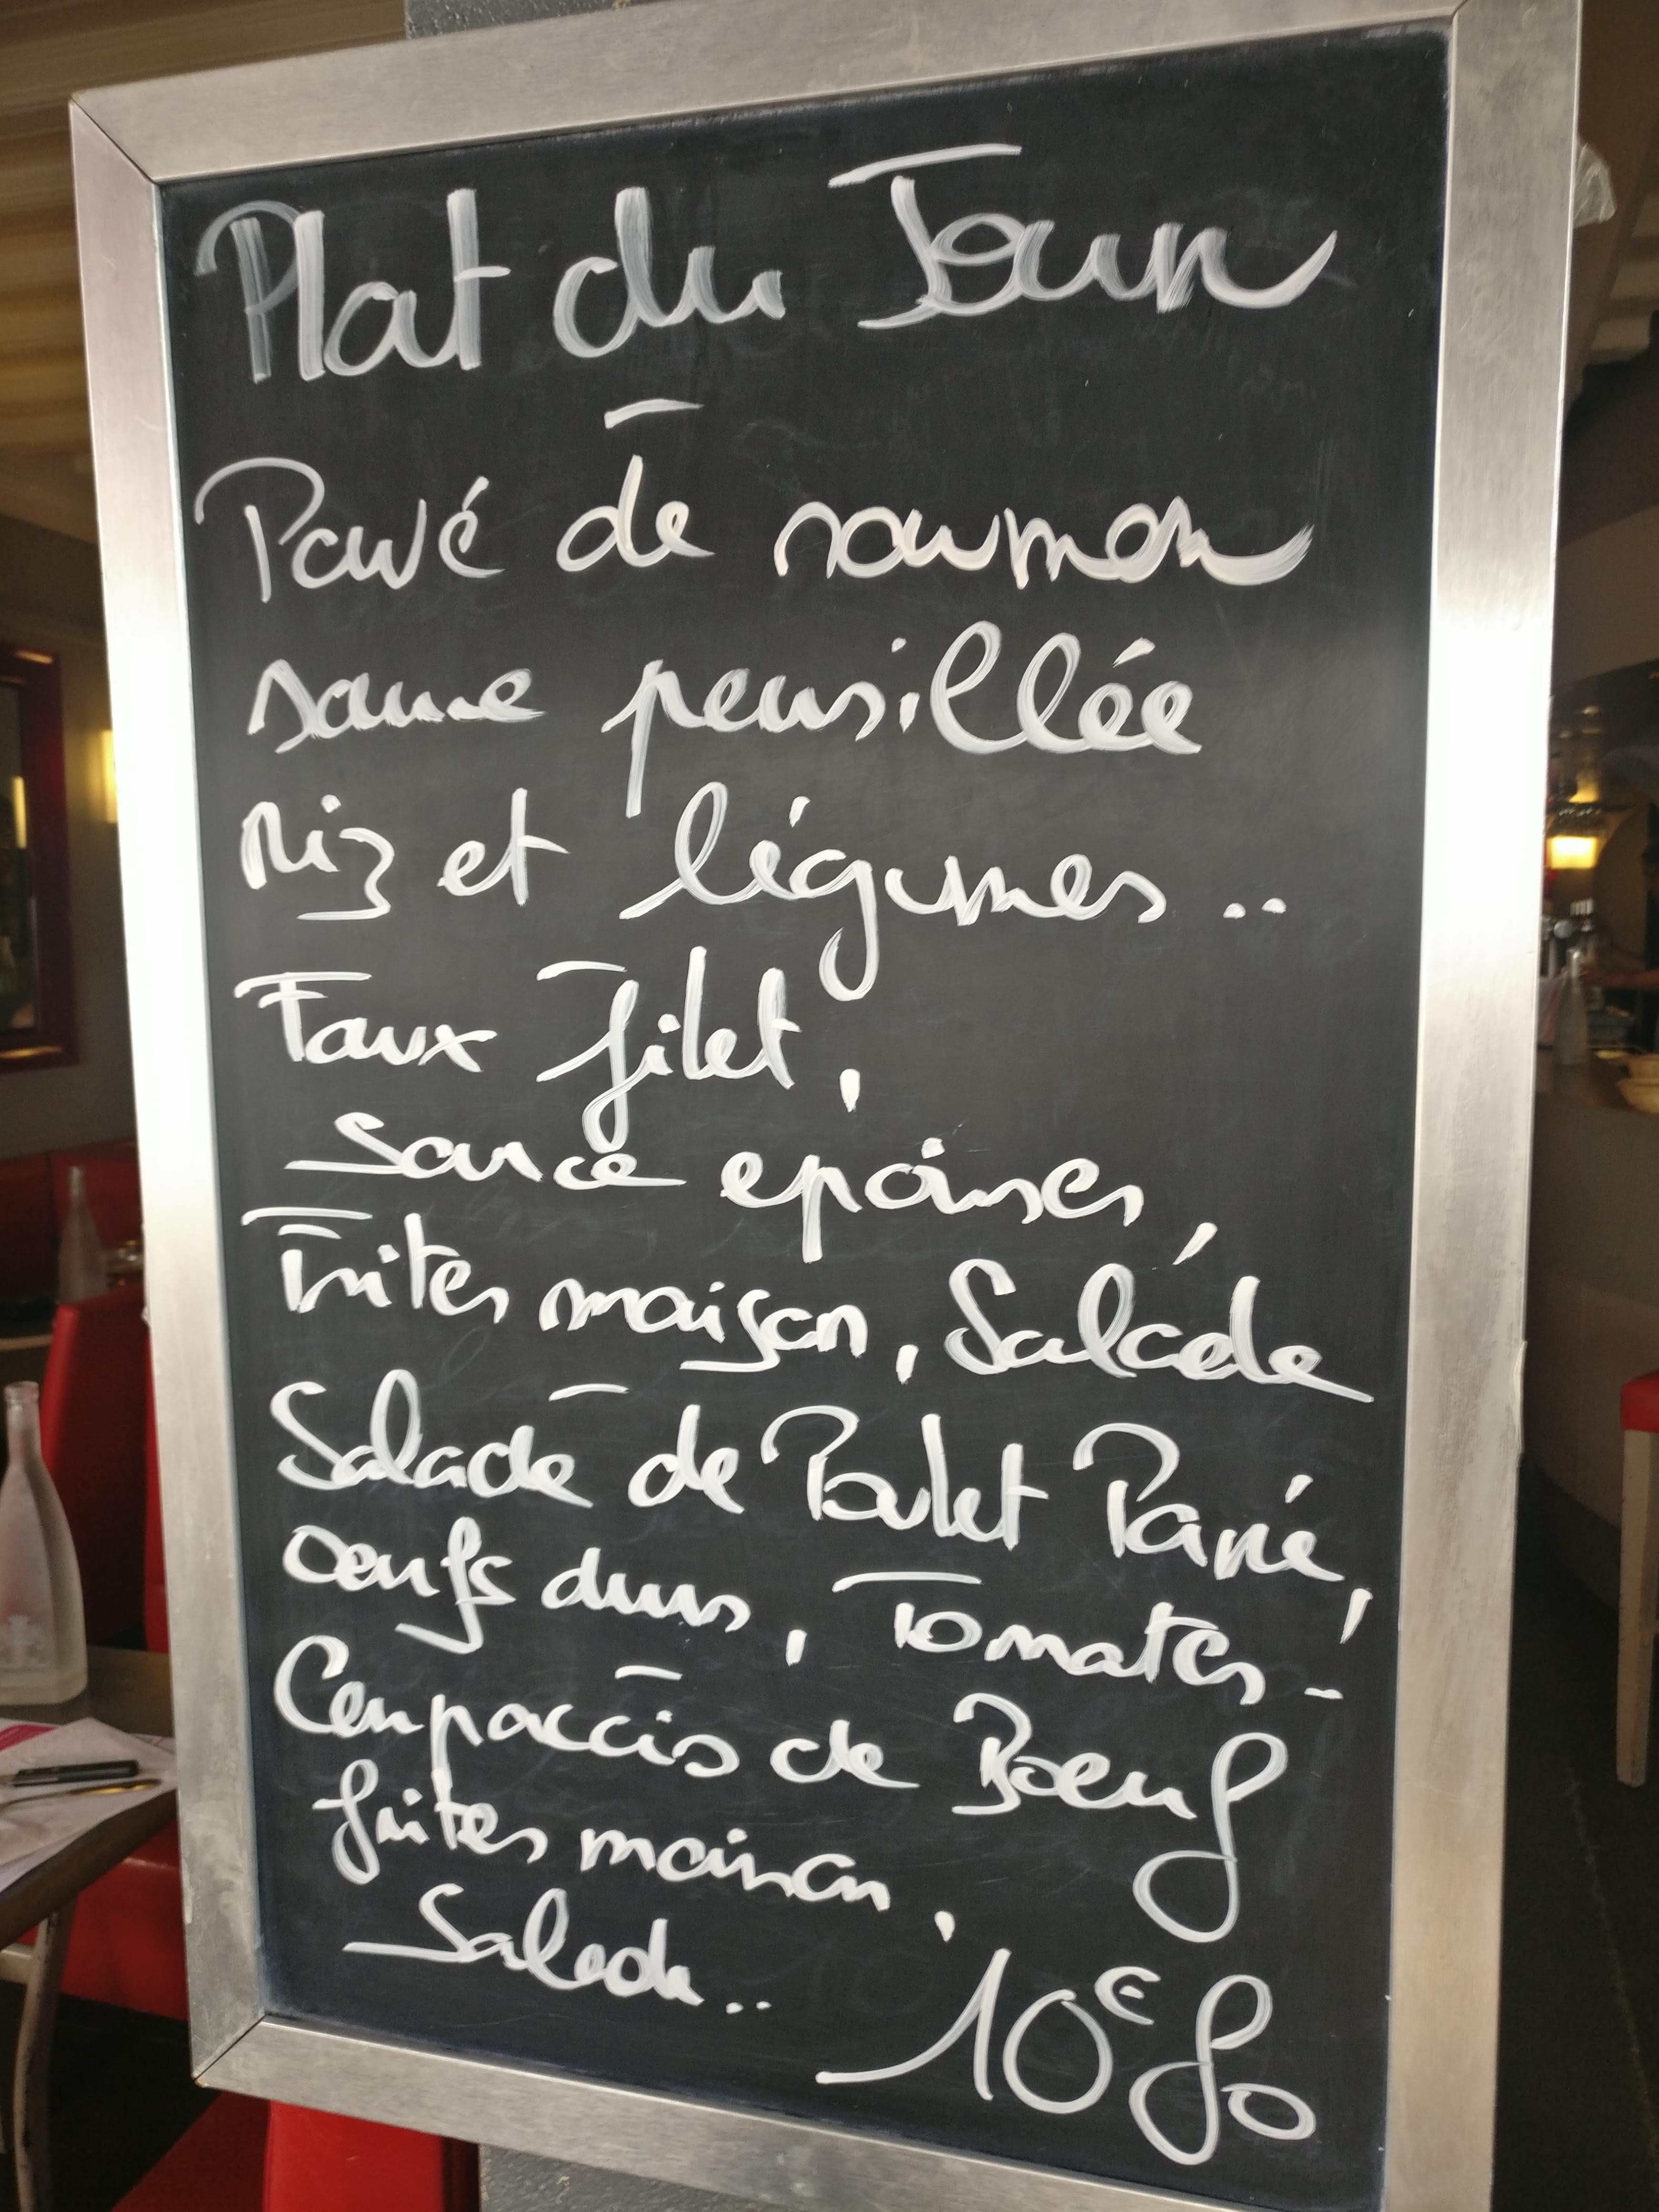 Plat du Jour
Pavé de saumon
sauce persillée
riz et légumes..
Faux filet,
Sauce epoisses,
Frites maison, Salade
Salade de Poulet Pané,
oeufs durs, Tomates -
Carpaccio de Boeuf
frites maison,
Salade..
10€80